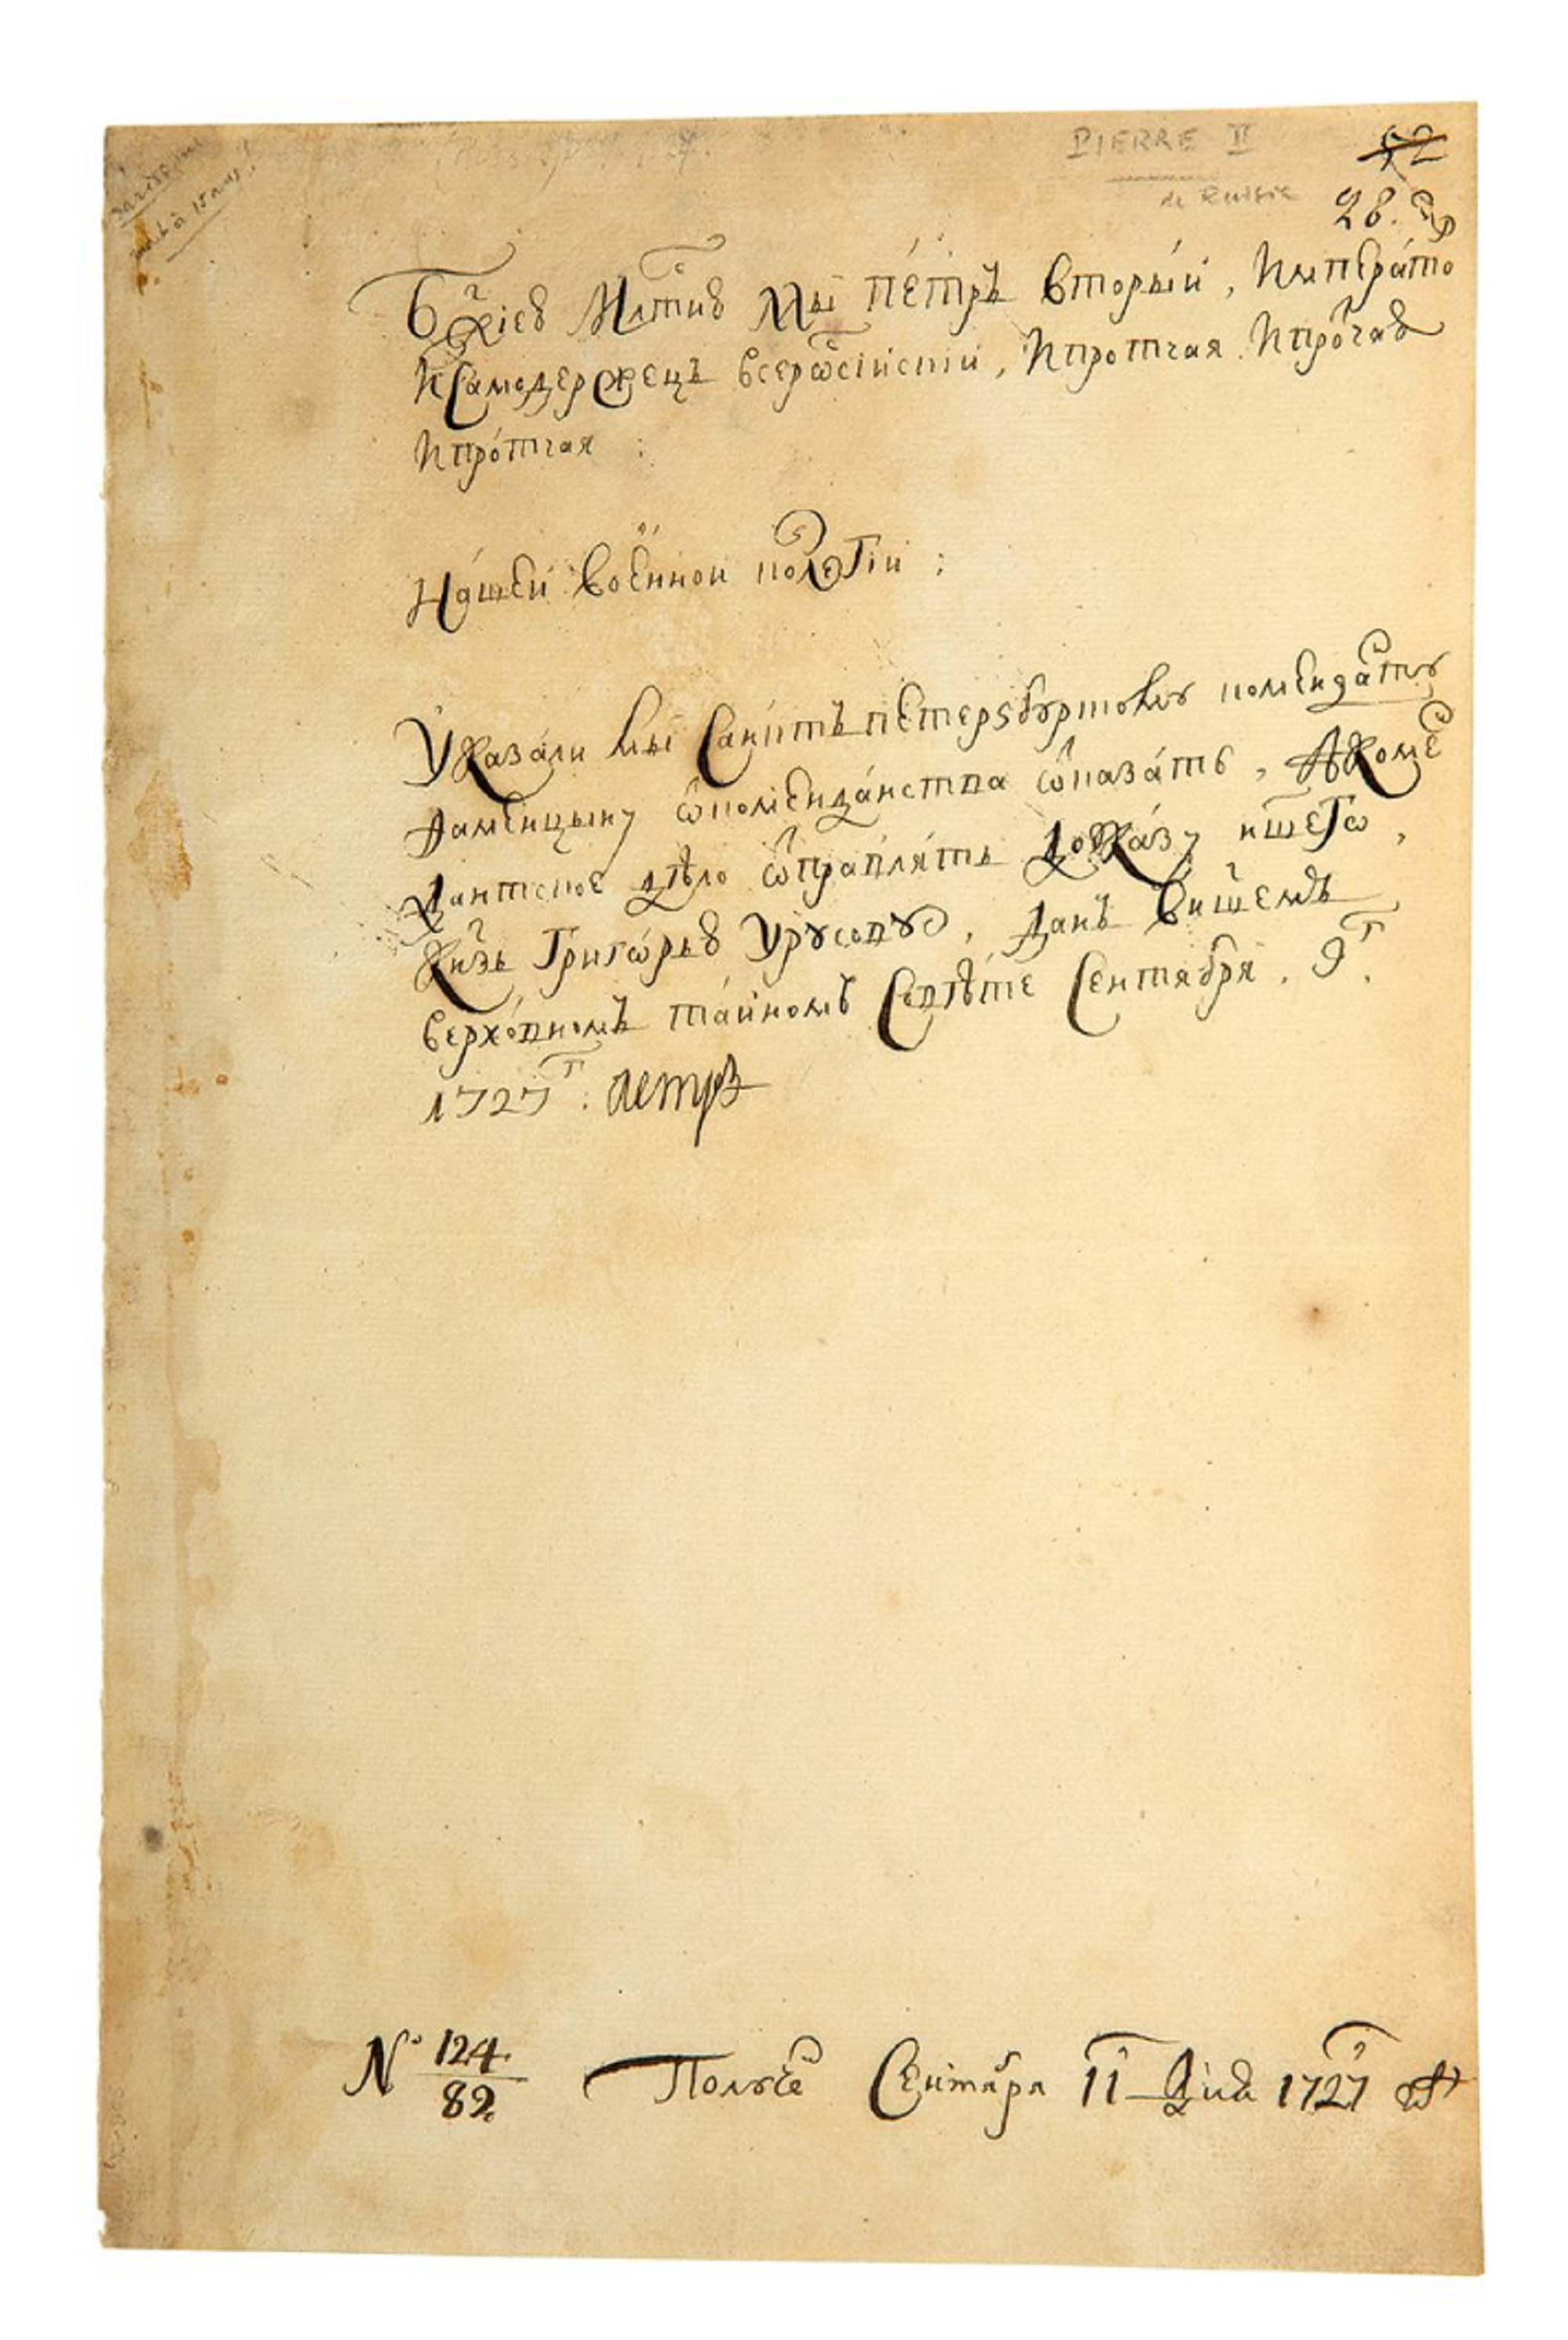 PIERRE II
de Russie
52
28.
Бжїею Млтию Мы Пе́тръ Вторы́й, Импера́то
и Самодержецъ Всерѡсїискїи, и протчая и прочая
и про́тчая :
На́шей Вое́нной коле́гїи :
Указа́ли мы Санктъпетерзбургскому коменда́нту
Фаминцыну ѿ коменда́нства ѿказа́ть, А коме
дантское дѣло ѿправля́ть до ука́зу ншегѡ,
Кнзь Григѡ́рью Урусову, Данъ в ншемъ
верхо́вномъ та́йномъ Совѣ́те Сентября. 9г.
1727г. Петръ
№ 124/82 Получе Сентебря 11 дня 1727